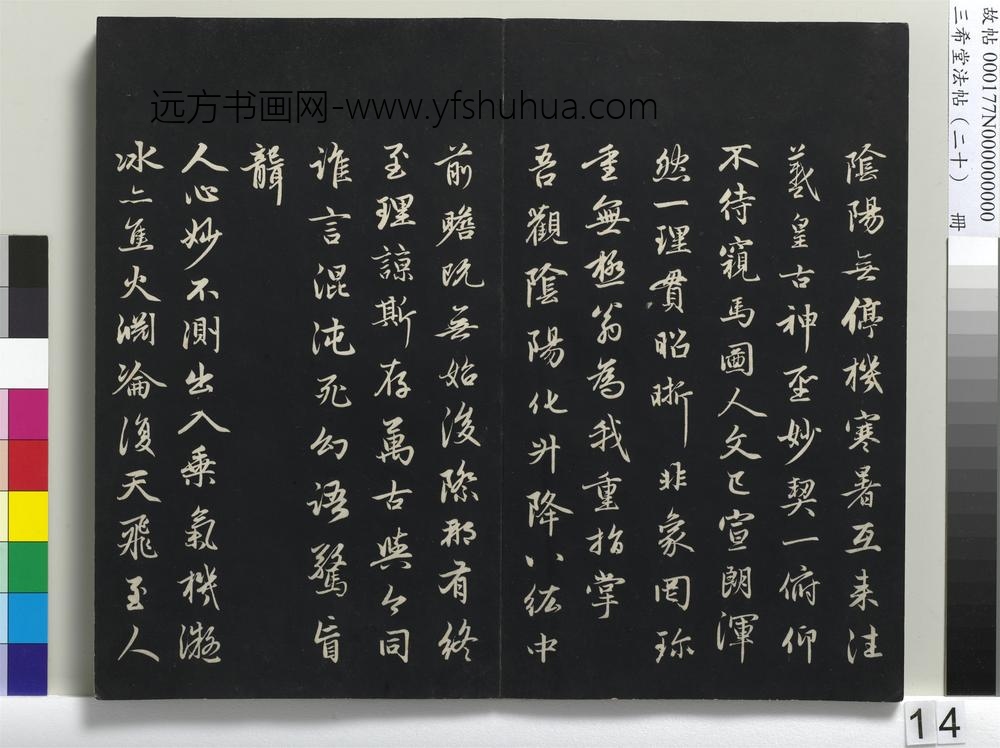 陰陽無停機寒暑互来往
羲皇古神聖妙契一俯仰
不待窺馬圖人文已宣朗渾
然一理貫昭晰非象罔珎
重無極翁為我重指掌
吾觀陰陽化升降八紘中
前瞻既無始後際那有終
至理諒斯存萬古與今同
誰言混沌死幻語驚盲
聾
人心妙不測出入乗氣機凝
冰亦焦火淵淪復天飛至人
远方书画网-www.yfshuhua.com
故帖 000177N000000000
三希堂法帖（二十） 冊
14